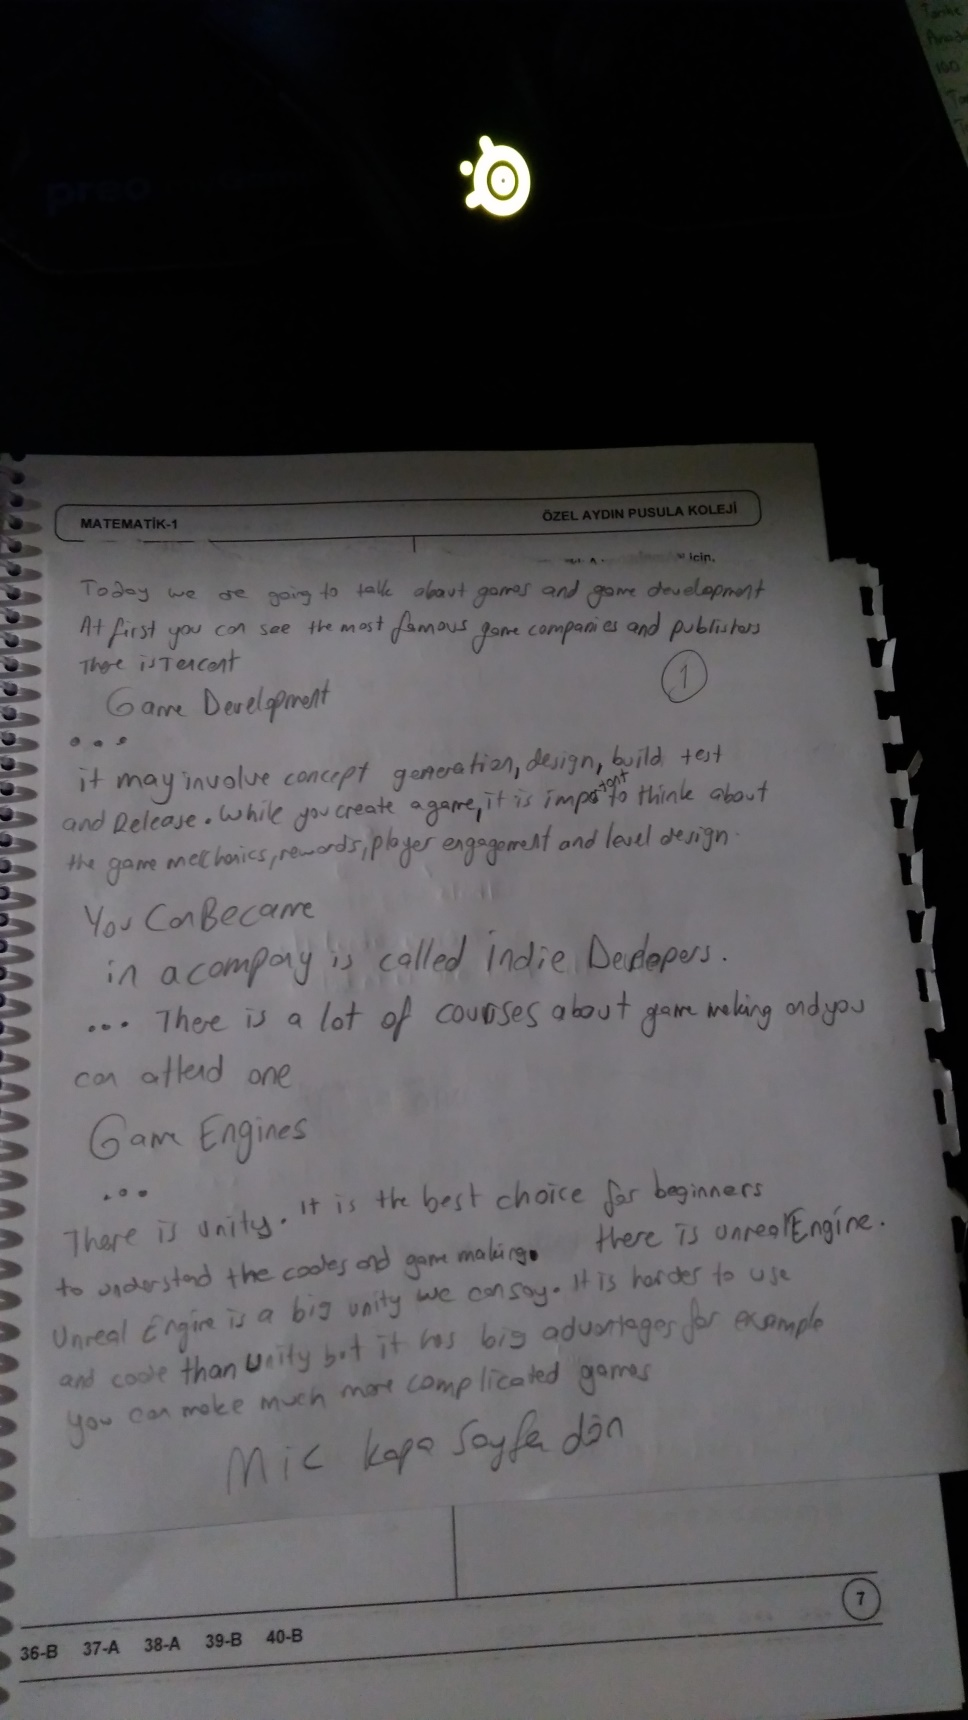 preo
MATEMATİK-1
ÖZEL AYDIN PUSULA KOLEJİ
için.
Today we are going to talk about games and game development
At first you can see the most famous game companies and publishers
There is Tencent
1
Game Development
...
it may involve concept generation, design, build test
and Release. While you create a game, it is important to think about
the game mechanics, rewards, player engagement and level design.
You Can Became
in a company is called indie Developers.
... There is a lot of courses about game making and you
can attend one
Game Engines
...
There is unity. It is the best choice for beginners
to understand the codes and game making. there is unreal Engine.
Unreal Engine is a big unity we can say. It is harder to use
and code than Unity but it has big advantages for example
you can make much more complicated games
Mic kapa Sayfa dön
7
36-B 37-A 38-A 39-B 40-B